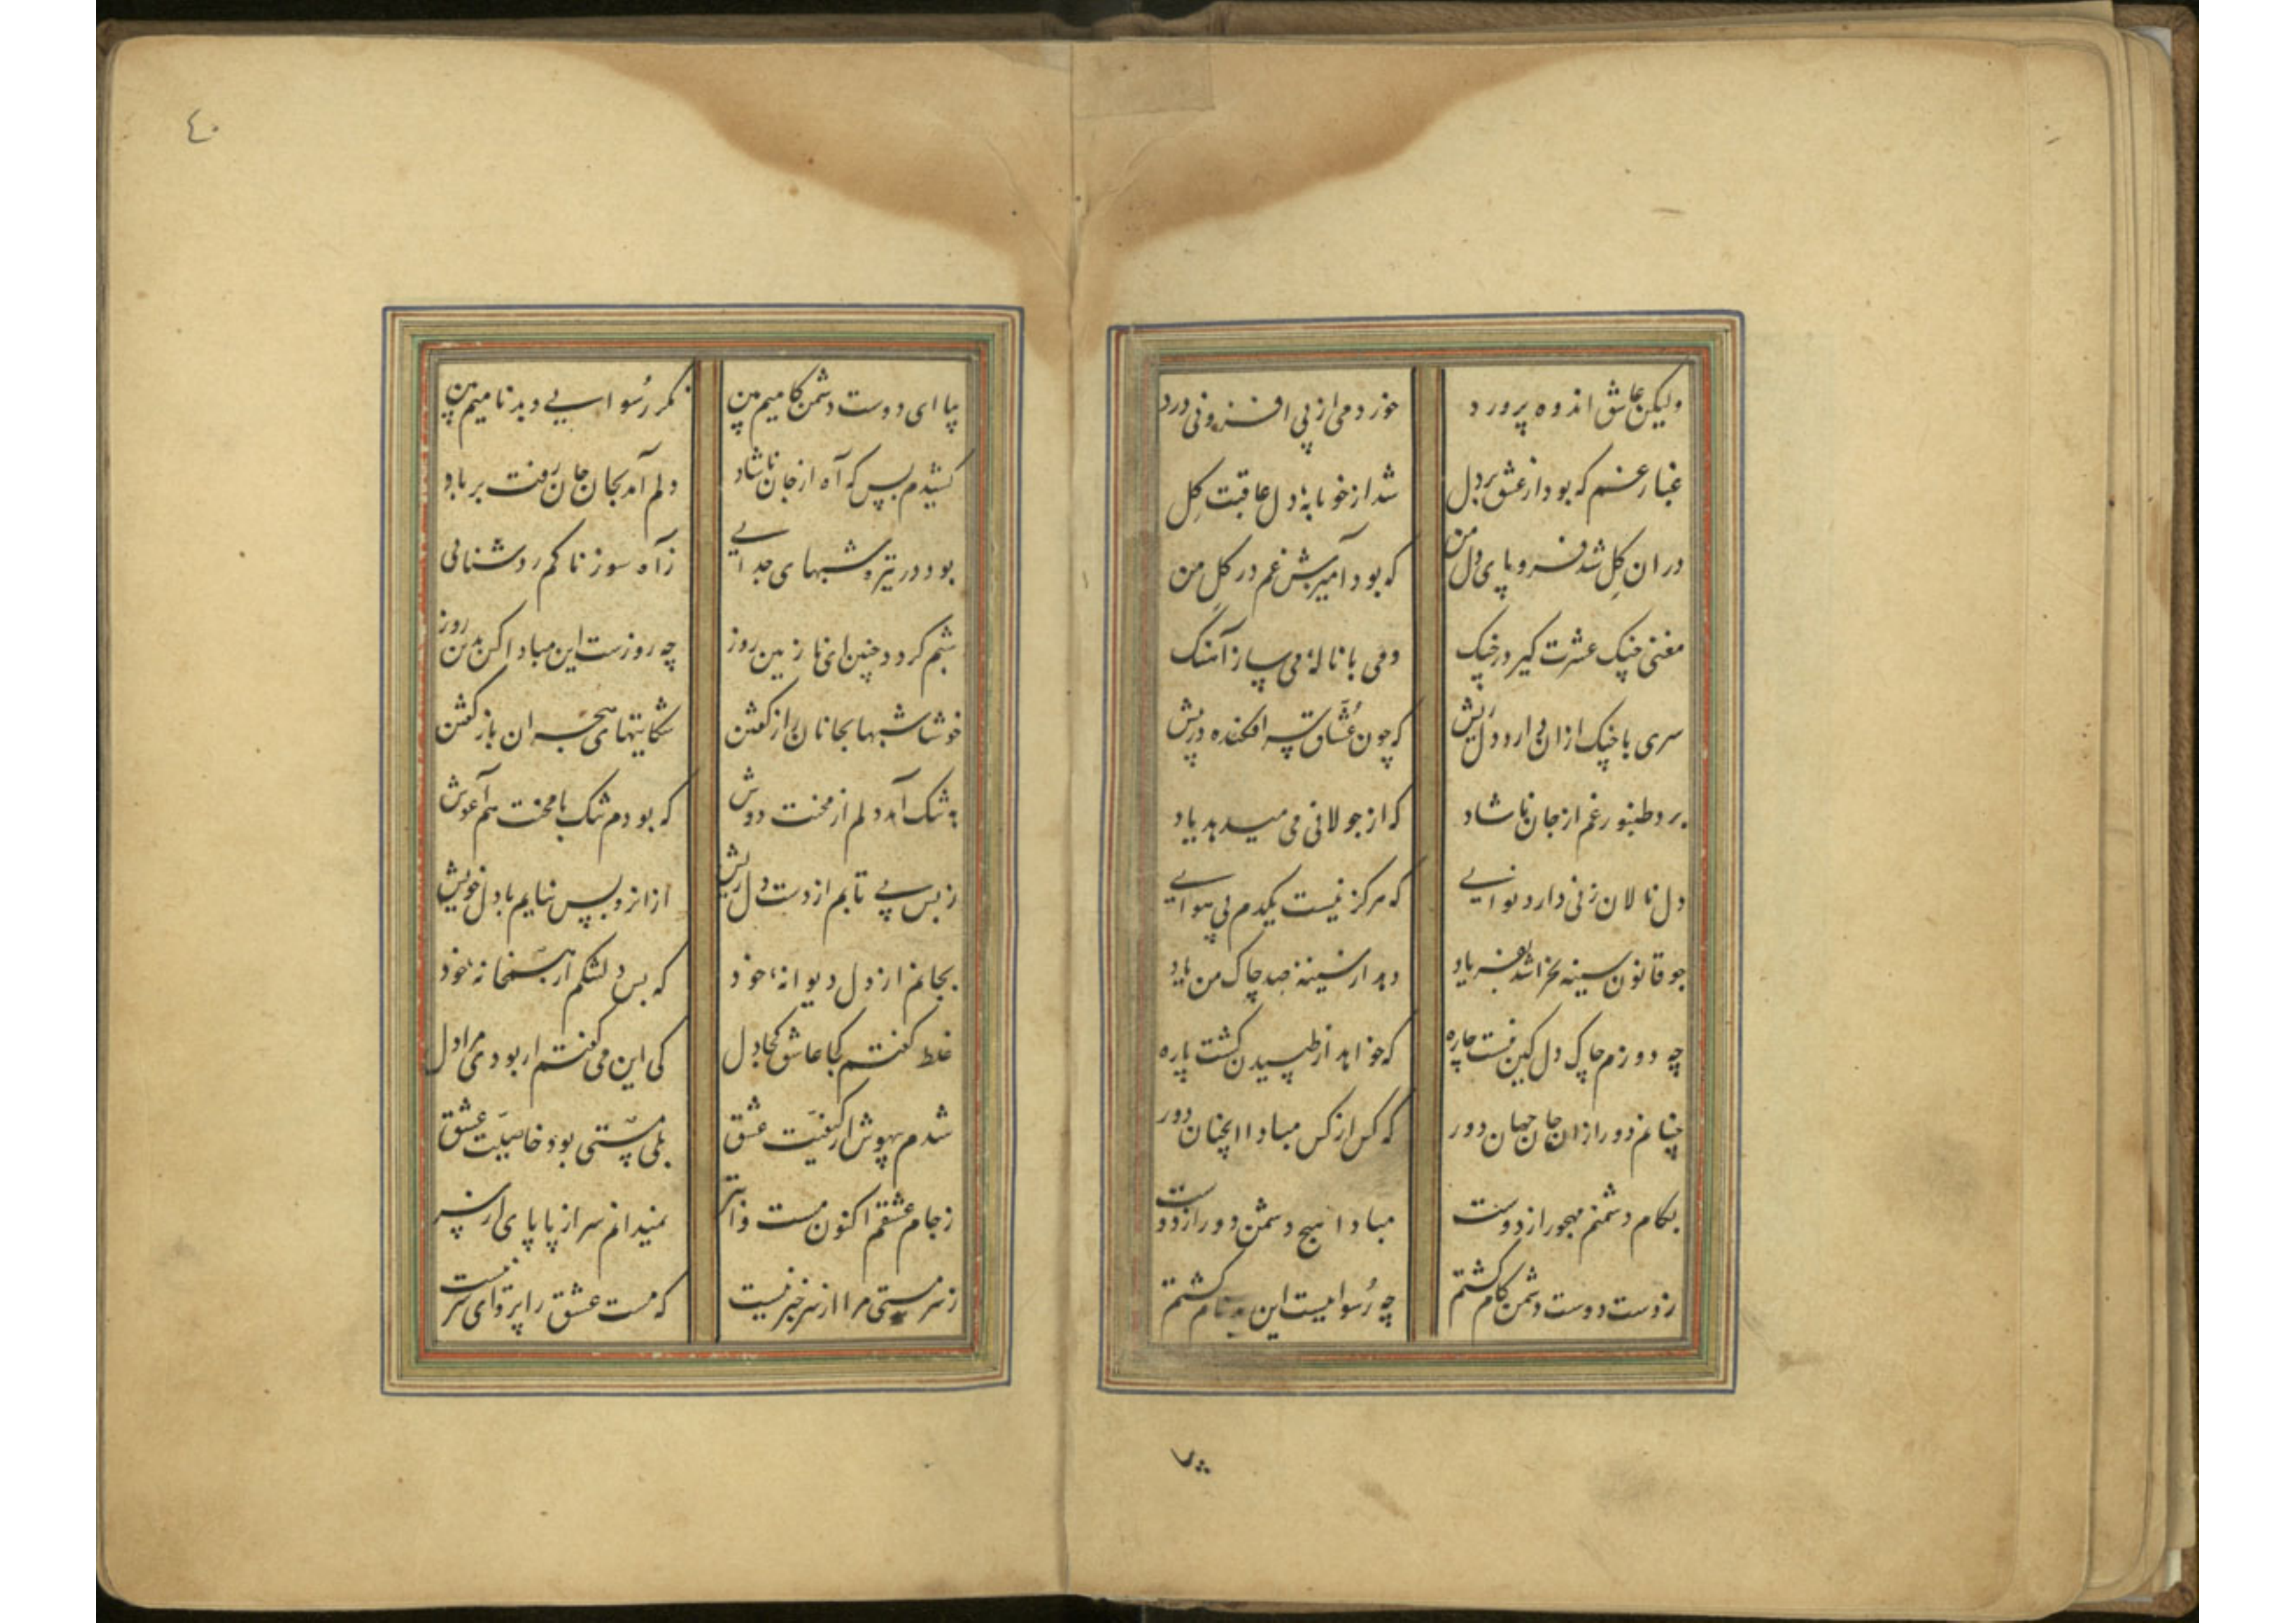 ولیکن عاشق اندوه پرورد خورد می از پی افزونی درد
غبار غم که بود از عشق بر دل شد از خونابهٔ دل عاقبت گل
در ان گل شد فرو پای دل من که بود آمیزش غم در گل من
مغنی چنگ عشرت گیر در چنگ دمی با نالهٔ می ساز آهنگ
سری با چنگ ازان دارد دل ریش که چون عشاق سر افکنده در پیش
برد طنبور غم از جان ناشاد که از جولانی می میدهد یاد
دل نالان زنی دارد نوایی که هرگز نیست یکدم بی هوایی
چو قانون سینه بخراشد بفریاد دهد از سینهٔ صد چاک من یاد
چه دوزم چاک دل کین نیست چاره که خواهد از طپیدن گشت پاره
چنانم دور ازان جان جهان دور که کس از کس مبادا انچنان دور
بکام دشمنم مهجور از دوست مبادا هیچ دشمن دور از دوست
ز دست دوست دشمن کام گشتم چه رسواییست این بدنام گشتم
بیا
٤٠
بیا ای دوست دشمن کامیم بین نگر رسوایی و بدنامیم بین
کشیدم بس که آه از جان ناشاد دلم آمد بجان جان رفت بر باد
بود در تیره شبهای جدایی ز آه سوزناکم روشنائی
شبم گردد چنین ای نازنین روز چه روزست این مباد اکس بدین روز
خوشا شبها بجانان راز گفتن شکایتهای هجران باز گفتن
به تنک آمد دلم از محنت دوش که بودم تنک با محنت هم آغوش
ز بس بی تابم از دست دل ریش ازانرو بس نیایم با دل خویش
بجانم از دل دیوانهٔ خود که بس دلتنکم از همخانهٔ خود
غلط گفتم کجا عاشق کجا دل کی این می گفتم ار بودی مرا دل
شدم بیهوش از کیفیت عشق بلی مستی بود خاصیت عشق
ز جام عشقم اکنون مست و ابتر نمیدانم سر از پا پای از سر
ز سرمستی مرا از سر خبر نیست که مست عشق را پروای سر نیست